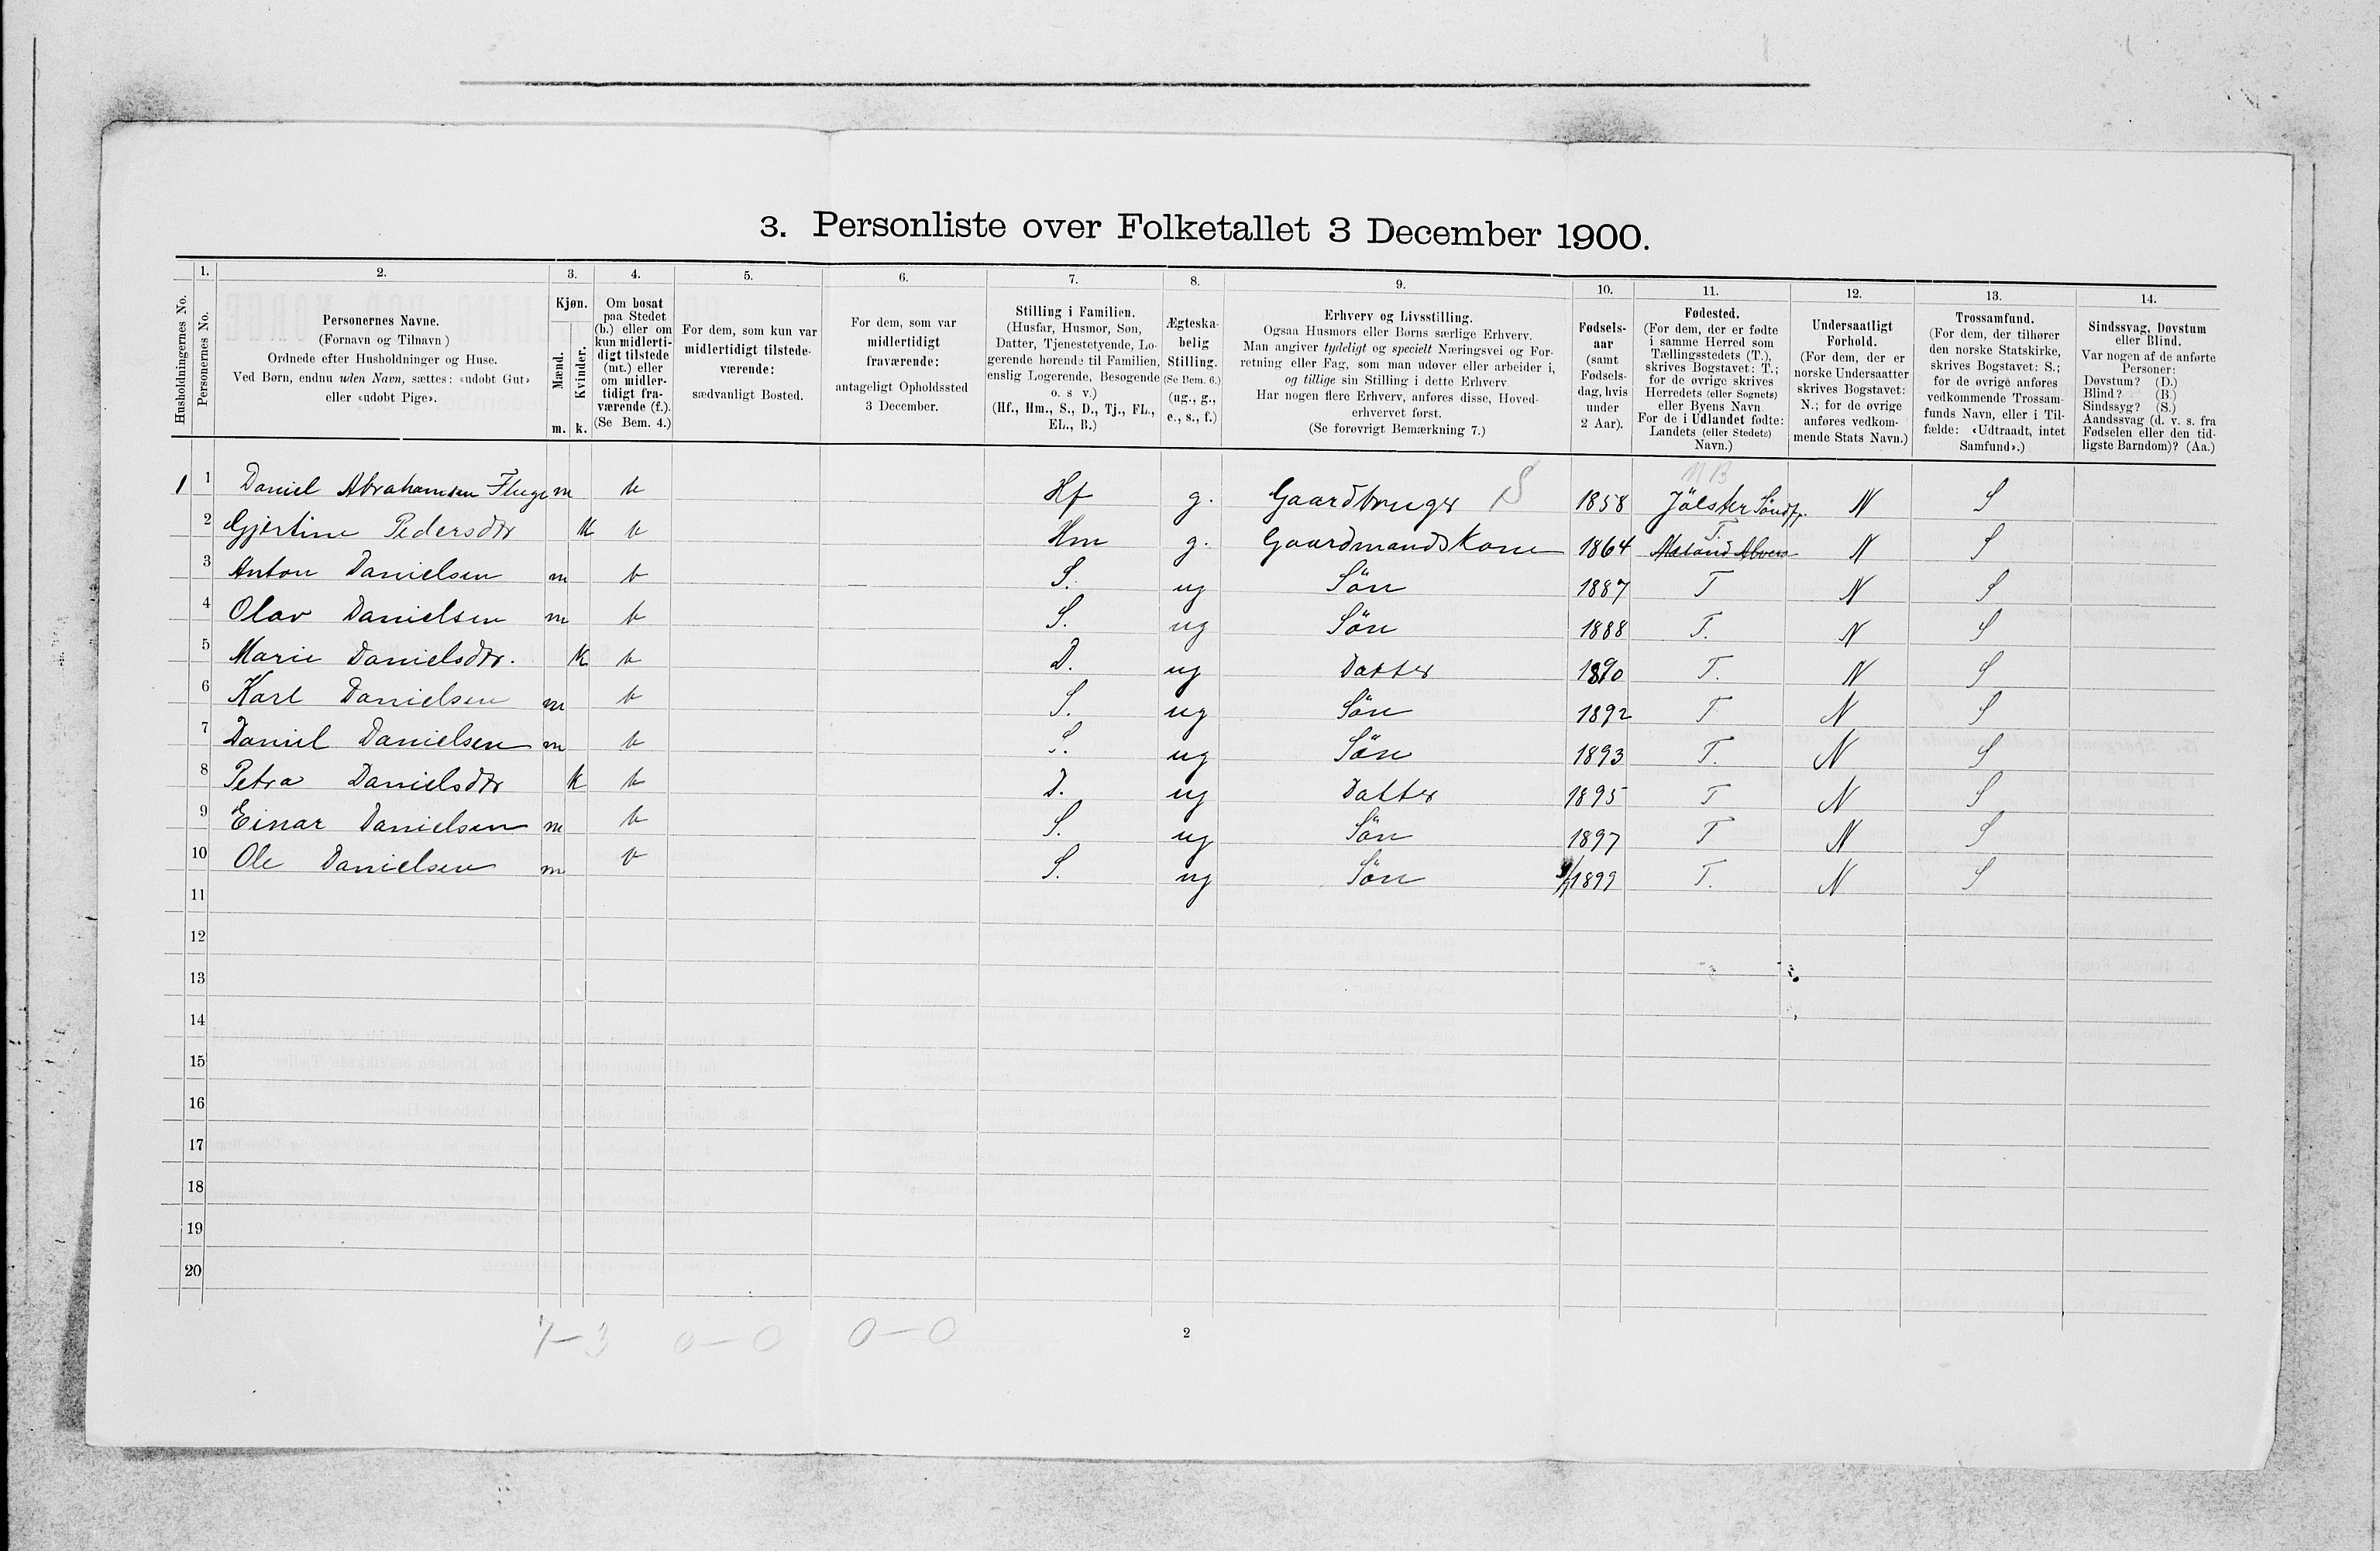 3. Personliste over Folketallet 3 December 1900.
1. 2. 3. 4. 5. 6. 7. 8. 9. 10. 11. 12. 13. 14.
Husholdningernes No.
Personernes No.
Personernes Navne.
(Fornavn og Tilnavn)
Ordnede efter Husholdninger og Huse.
Ved Børn, endnu uden Navn, sættes: «udøbt Gut»
eller «udøbt Pige».
Kjøn.
Mænd.
Kvinder.
m. k.
Om bosat
paa Stedet
(b.) eller om
kun midlerti-
digt tilstede
(mt.) eller
om midler-
tidigt fra-
værende (f.).
(Se Bem. 4.)
For dem, som kun var
midlertidigt tilstede-
værende:
sædvanligt Bosted.
For dem, som var
midlertidigt
fraværende:
antageligt Opholdssted
3 December.
Stilling i Familien.
(Husfar, Husmor, Søn,
Datter, Tjenestetyende, Lo-
gerende hørende til Familien,
enslig Logerende, Besøgende
o. s v.)
(Hf., Hm., S., D., Tj., FL.,
EL., B.)
Ægteska-
belig
Stilling.
(Se Bem. 6.)
(ug., g.,
e., s., f.)
Erhverv og Livsstilling.
Ogsaa Husmors eller Børns særlige Erhverv.
Man angiver tydeligt og specielt Næringsvei og For-
retning eller Fag, som man udøver eller arbeider i,
og tillige sin Stilling i dette Erhverv.
Har nogen flere Erhverv, anføres disse, Hoved-
erhvervet først.
(Se forøvrigt Bemærkning 7.)
Fødsels-
aar
(samt
Fødsels-
dag, hvis
under
2 Aar).
Fødested.
(For dem, der er fødte
i samme Herred som
Tællingsstedets (T.),
skrives Bogstavet: T.;
for de øvrige skrives
Herredets (eller Sognets)
eller Byens Navn
For de i Udlandet fødte:
Landets (eller Stedets)
Navn.)
Undersaatligt
Forhold.
(For dem, der er
norske Undersaatter
skrives Bogstavet:
N.; for de øvrige
anføres vedkom-
mende Stats Navn.)
Trossamfund.
(For dem, der tilhører
den norske Statskirke,
skrives Bogstavet: S.;
for de øvrige anføres
vedkommende Trossam-
funds Navn, eller i Til-
fælde: «Udtraadt, intet
Samfund».)
Sindssvag, Døvstum
eller Blind.
Var nogen af de anførte
Personer:
Døvstum? (D.)
Blind? (B.)
Sindssyg? (S.)
Aandssvag (d. v. s. fra
Fødselen eller den tid-
ligste Barndom)? (Aa.)
NB
1 1 Daniel Abrahamsen Fluge m b Hf g. Gaardbruger S 1858 Jölster Söndf. N S
2 Gjertine Pedersdtr k b Hm g. Gaardmandskone 1864 T. N S
3 Anton Danielsen m b S. ug Sön 1887 T N S
4 Olav Danielsen m b S. ug Sön 1888 T. N S
5 Marie Danielsdtr. k b D. ug Datter 1890 T. N S
6 Karl Danielsen m b S. ug Sön 1892 T N S
7 Daniel Danielsen m b S. ug Sön 1893 T. N S
8 Petra Danielsdtr k b D. ug Datter 1895 T N S
9 Einar Danielsen m b S. ug Sön 1897 T N S
10 Ole Danielsen m b S. ug Sön 1899 T. N S
11
12
13
14
15
16
17
18
19
20
7-3 0-0 0-0
2